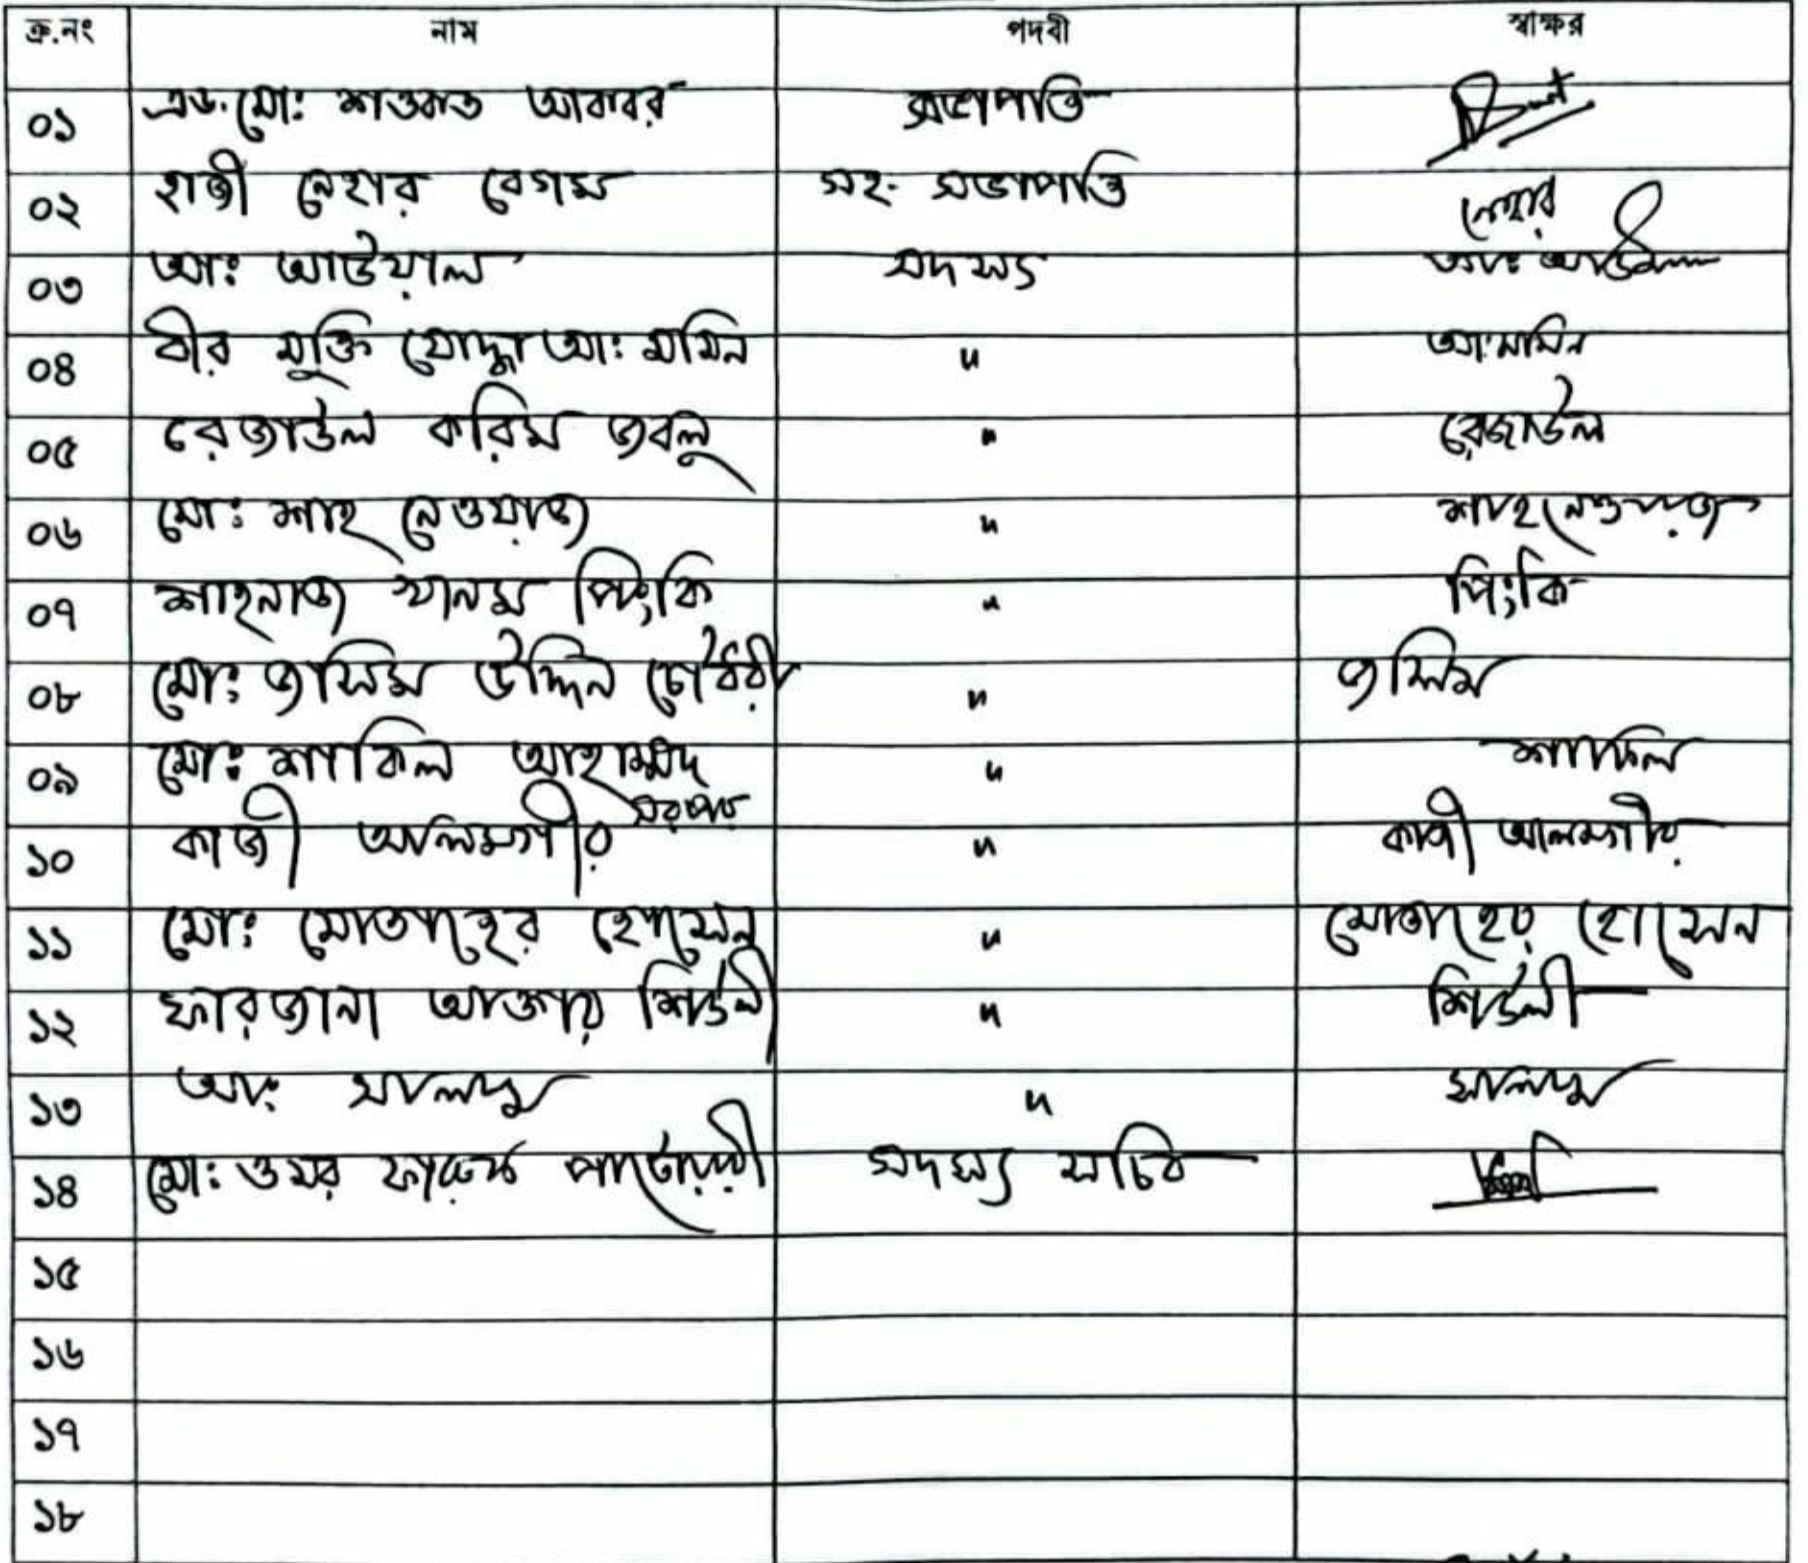 ক্র.নং নাম পদবী স্বাক্ষর
০১ এড. মোঃ শওকত আকবর সভাপতি
০২ হাজী নেহার বেগম সহ. সভাপতি নেহার
০৩ আঃ আউয়াল সদস্য আঃ আউয়াল
০৪ বীর মুক্তি যোদ্ধা আঃ মমিন " আঃ মমিন
০৫ রেজাউল করিম জবলু " রেজাউল
০৬ মোঃ শাহ নেওয়াজ " শাহ নেওয়াজ
০৭ শাহনাজ খানম পিংকি " পিংকি
০৮ মোঃ জসিম উদ্দিন চৌধুরী " জসিম
০৯ মোঃ শাকিল আহাম্মদ " শাকিল
১০ কাজী আলমগীর " কাজী আলমগীর
১১ মোঃ মোতাহের হোসেন " মোতাহের হোসেন
১২ ফারজানা আক্তার শিউলী " শিউলী
১৩ আঃ সালাম " সালাম
১৪ মোঃ ওমর ফারুক পাটোয়ারী সদস্য সচিব
১৫
১৬
১৭
১৮